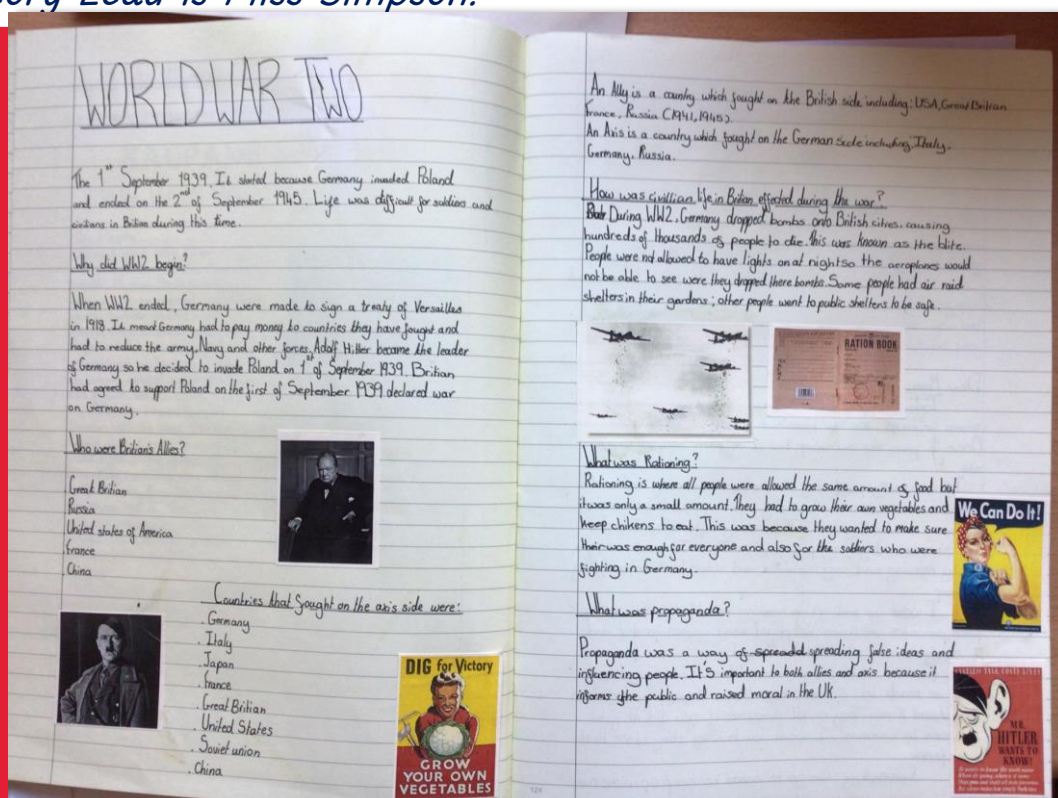 ory Lead is Miss Simpson.
WORLD WAR TWO
The 1st September 1939. It started because Germany invaded Poland
and ended on the 2nd of September 1945. Life was difficult for soldiers and
civilians in Britian during this time.
Why did WW2 begin?
When WW2 ended, Germany were made to sign a treaty of Versailles
in 1918. It meant Germany had to pay money to countries they have fought and
had to reduce the army, Navy and other forces. Adolf Hitler became the leader
of Germany so he decided to invade Poland on 1st of September 1939. Britian
had agreed to support Poland on the first of September 1939 declared war
on Germany.
Who were Britian's Allies?
Great Britian
Russia
United states of America
France
China
Countries that fought on the axis side were:
. Germany
. Italy
. Japan
. france
. Great Britian
. United States
. Soviet union
. China
DIG for Victory
GROW
YOUR OWN
VEGETABLES
An Ally is a country which fought on the British side including: USA, Great Britian
france, Russia (1941, 1945).
An Axis is a country which fought on the German side including, Italy,
Germany, Russia.
How was civillian life in Britian effected during the war?
During WW2, Germany dropped bombs onto British cities, causing
hundreds of thousands of people to die. this was known as the blitz.
People were not allowed to have lights on at night so the aeroplanes would
not be able to see were they dropped there bombs. Some people had air raid
shelters in their gardens; other people went to public shelters to be safe.
RATION BOOK
What was Rationing?
Rationing is where all people were allowed the same amount of food but
it was only a small amount. They had to grow their own vegetables and
keep chikens to eat. This was because they wanted to make sure
their was enough for everyone and also for the soldiers who were
fighting in Germany.
We Can Do It!
What was propaganda?
Propaganda was a way of spreadd spreading false ideas and
influencing people. It's important to both allies and axis because it
informs the public and raised moral in the UK.
MR.
HITLER
WANTS TO
KNOW!
124